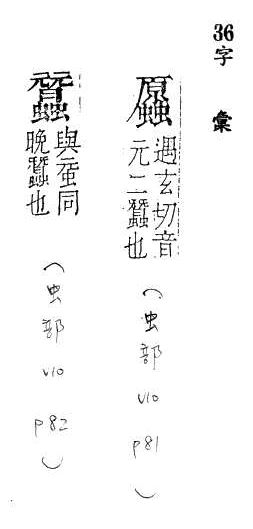 36
字彙
遇玄切音
元二蠶也
（虫部 v10 p81）
與同
晚蠶也
（虫部 v10 p82）